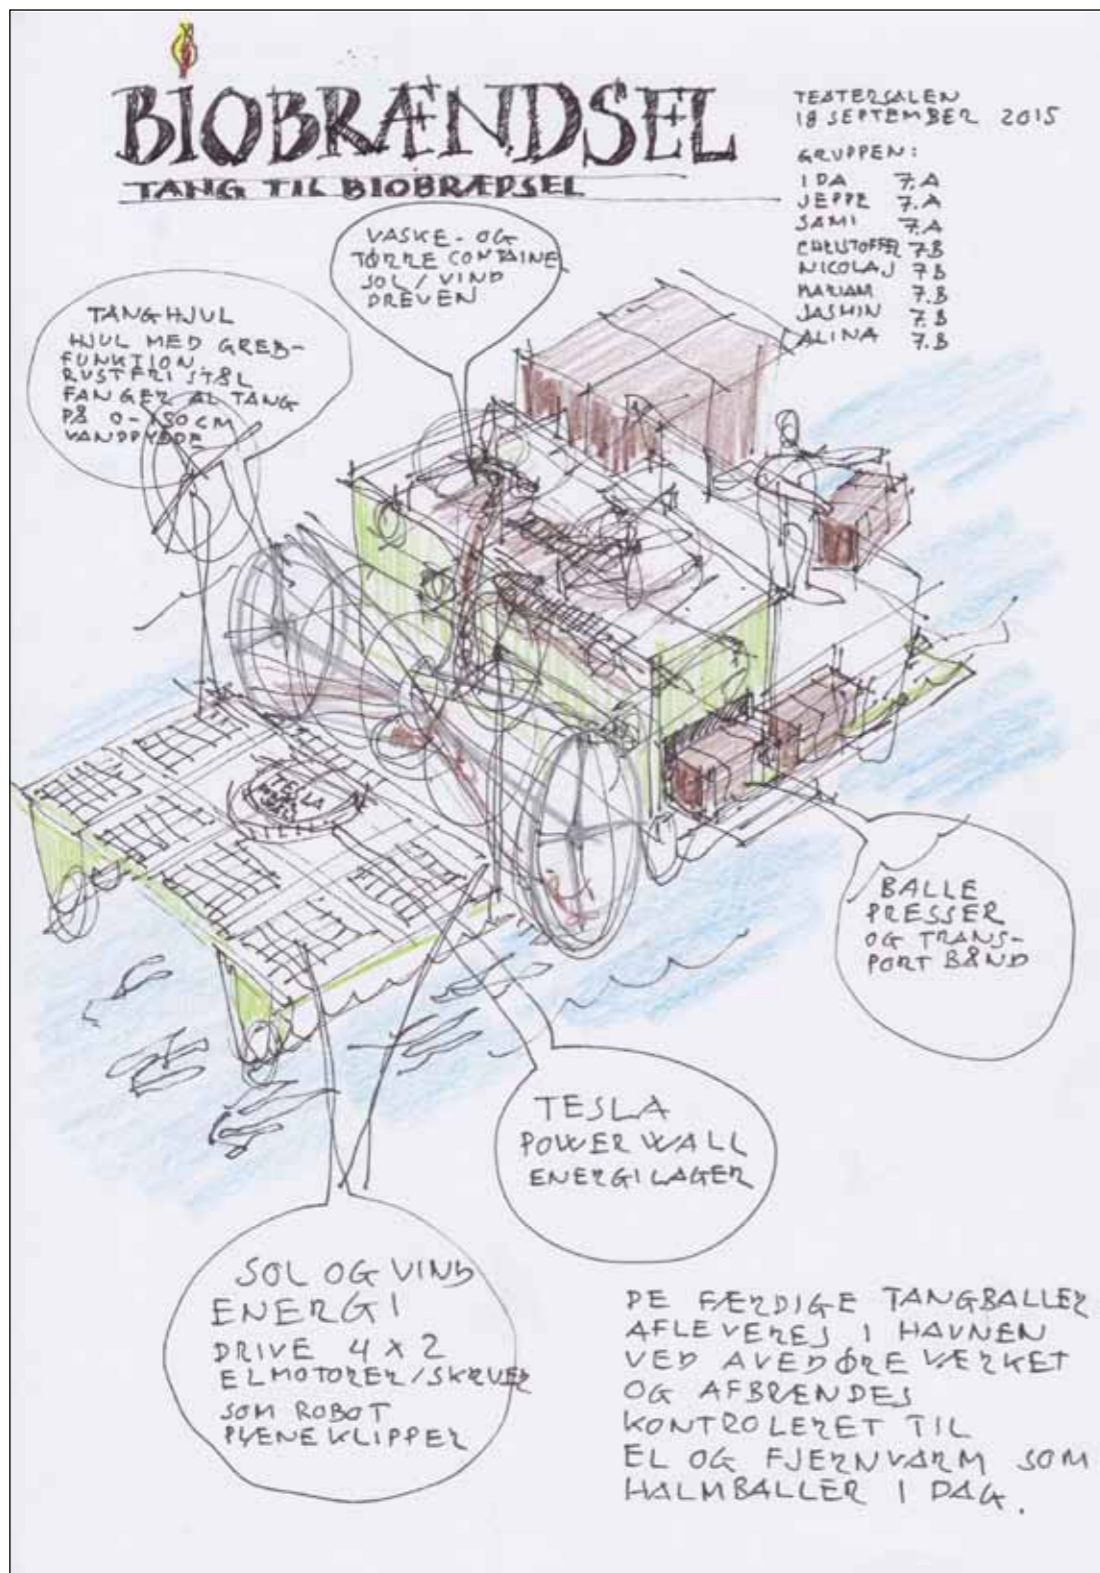 BIOBRÆNDSEL
TANG TIL BIOBRÆDSEL
TEATERSALEN
18 SEPTEMBER 2015
GRUPPEN:
IDA 7.A
JEPPE 7.A
SAMI 7.A
CHRISTOFFER 7.B
NICOLAJ 7B
MARIAM 7.B
JASMIN 7.B
ALINA 7.B
VASKE- OG
TØRRE CONTAINE
SOL / VIND
DREVEN
TANGHJUL
HJUL MED GREB-
FUNKTION
RUSTFRI STÅL
FANGER AL TANG
PÅ 0-150 CM
VANDDYBDE
TESLA
BALLE
PRESSER
OG TRANS-
PORT BÅND
TESLA
POWER WALL
ENERGILAGER
SOL OG VIND
ENERGI
DRIVE 4 X 2
ELMOTORER/SKRUER
SOM ROBOT
PLÆNEKLIPPER
DE FÆRDIGE TANGBALLER
AFLEVERES I HAVNEN
VED AVEDØRE VÆRKET
OG AFBRÆNDES
KONTROLERET TIL
EL OG FJERNVARM SOM
HALMBALLER I DAG.